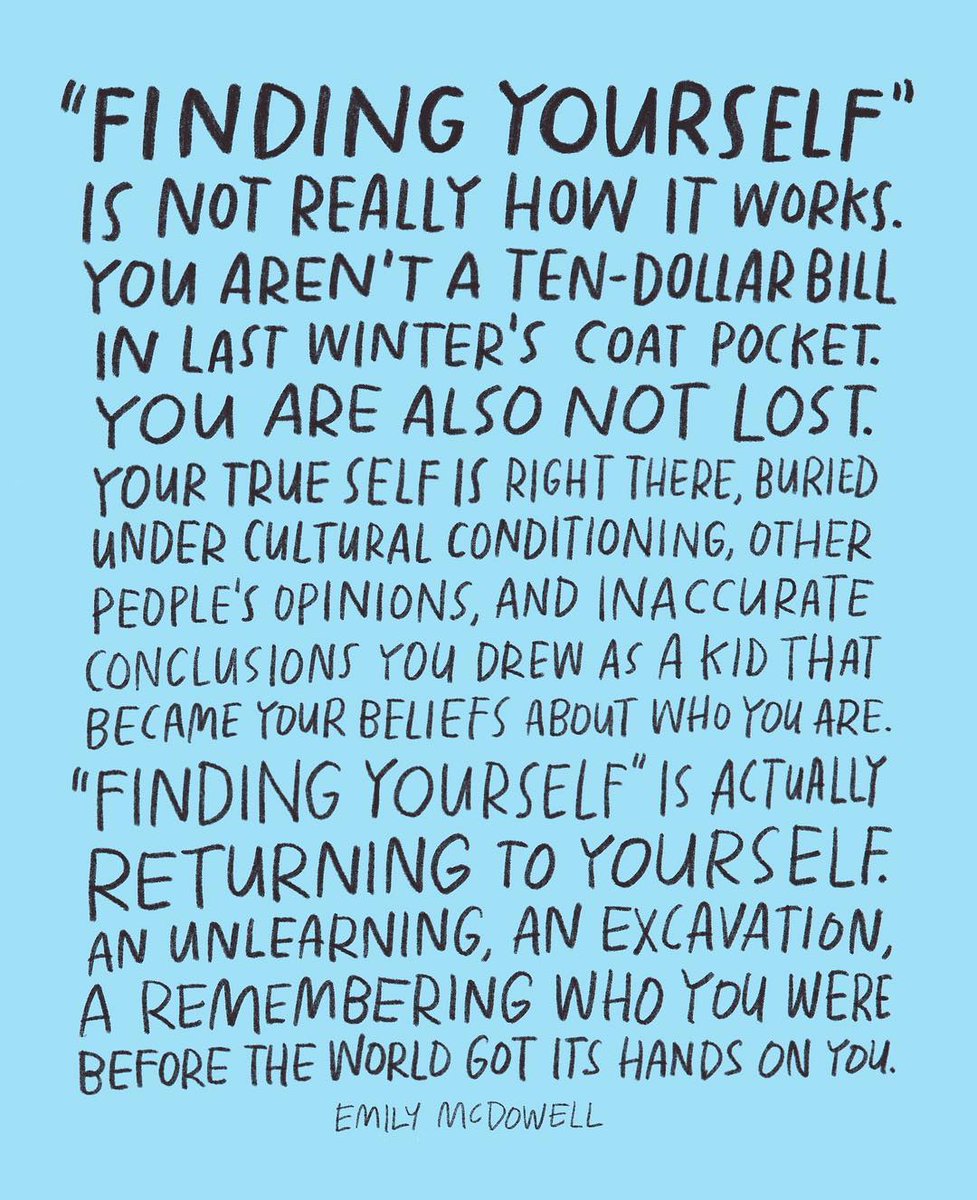 "FINDING YOURSELF"
IS NOT REALLY HOW IT WORKS.
YOU AREN'T A TEN-DOLLAR BILL
IN LAST WINTER'S COAT POCKET.
YOU ARE ALSO NOT LOST.
YOUR TRUE SELF IS RIGHT THERE, BURIED
UNDER CULTURAL CONDITIONING, OTHER
PEOPLE'S OPINIONS, AND INACCURATE
CONCLUSIONS YOU DREW AS A KID THAT
BECAME YOUR BELIEFS ABOUT WHO YOU ARE.
"FINDING YOURSELF" IS ACTUALLY
RETURNING TO YOURSELF.
AN UNLEARNING, AN EXCAVATION,
A REMEMBERING WHO YOU WERE
BEFORE THE WORLD GOT ITS HANDS ON YOU.
EMILY MCDOWELL